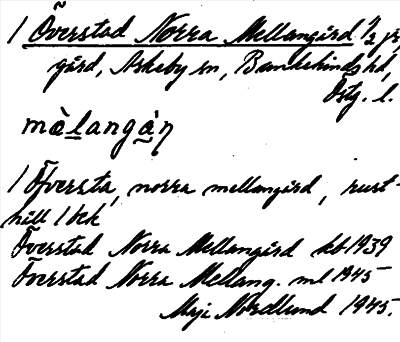 1 Överstad Norra Mellangård 1/2 jr,
gård, Askeby sn, Bankekinds hd,
Östg. l.
mälangån
1 Öfversta, norra mellangård, rust-
håll 1 bek
Överstad Norra Mellangård kb 1939
Överstad Norra Mellang. ml 1945
Maji Nordlund 1945.